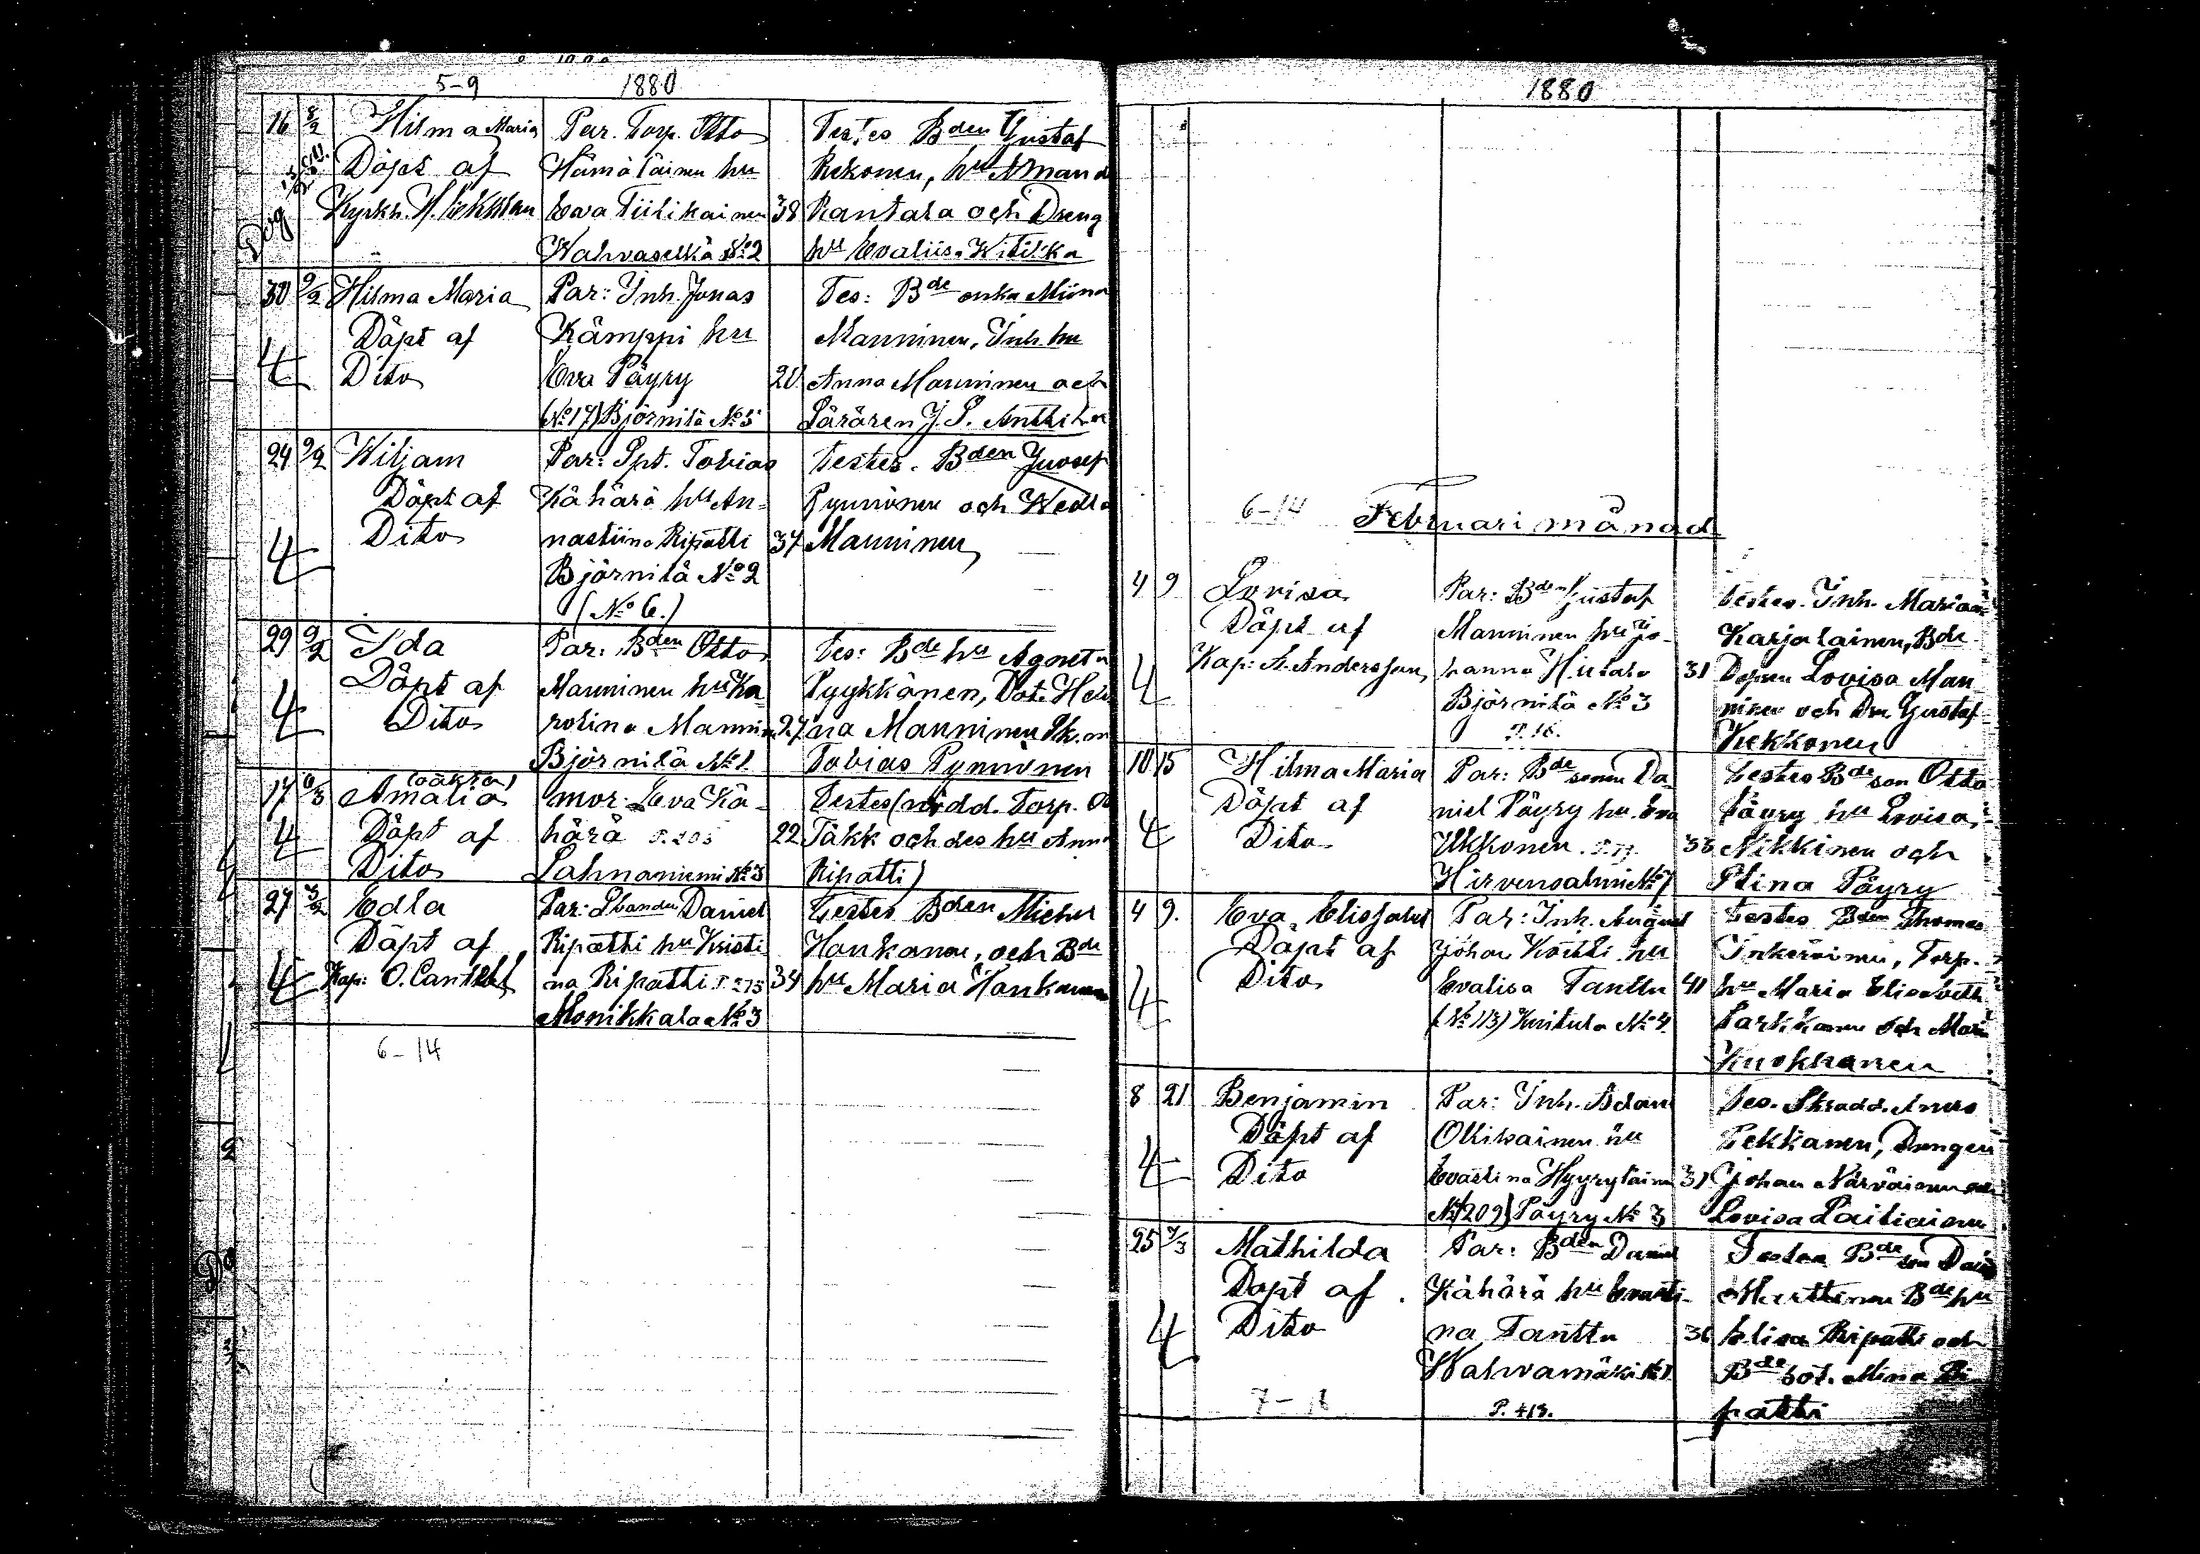 5-9 1880
16 8/2 Hilma Maria Par. Torp. Otto Testes Bden Gustaf
Döpt af Hämäläinen hu Kekonen, hu Amand
Kyrkh. H. Pekkanen Eva Tiilikainen 38 Rantala och Dreng
Dög Wahvaselkä No 2 hu Evaliisa Witikka
30 9/2 Hilma Maria Par: Inh. Jonas Tes: Bde enka Miina
Döpt af Kämppi hu Manninen, Inh. hu
4 Dito Eva Päyry 20 Anna Manninen och
(No 17) Björnilä No 5 Läraren J. P. Anttila
24 9/2 Wiljam Par: Spt. Tobias Testes. Bden Juosef
Döpt af Kähärä hu An- Pynnönen och Wedla
4 Dito nastiina Ripatti 34 Manninen
Björnilä No 2
(No 6.)
29 9/2 Ida Par: Bden Otto Tes: Bde hu Agneta
Döpt af Manninen hu Ka Pyykkönen, Dot. Hele
4 Dito rolina Mannin 27 na Manninen
Björnilä No 1. Tobias Pynnönen
(oäkta)
17 6/3 Amalia mor Eva Kä- Testes (nödd. Torp. Ot
4 Döpt af härä P. 205 22 Täkk och des hu Anna
Dito Lahnaniemi No 3 Ripatti)
27 3/2 Edla Par: Daniel Testes Bden Michel
Döpt af Ripatti hu Kristi Hankanen, och Bde
4 Kap: O. Canthel na Ripatti P. 275 34 hu Maria Hankanen
Monikkala No 3
6-14
1880
6-14 Februari månad
4 9 Lovisa Par: Bden Gustaf testes. Inh. Maria
Döpt af Manninen hu Jo- Karjalainen, Bde
4 Kap: A. Andersson hanna Hutala 31 Lovisa Man
Björnilä No 3 ninen och Dr. Gustaf
P. 16. Kekkonen
10 15 Hilma Maria Par: Bde sonen Da testes Bde son Otto
Döpt af niel Päyry hu Eva Päyry hu Lovisa
4 Dito Ukkonen 33 Nikkinen och
Hirvensalmi No 7 Stina Päyry
4 9. Eva Elisabet Par: Inh. August testes Bden Thomas
Döpt af Johan Kortti hu Inkeroinen, Torp.
4 Dito Evalisa Tanttu 41 hu Maria Elisabeth
(No 113) Kuitula No 4. Parkkonen och Mari
Kuokkanen
8 21 Benjamin Par: Inh. Adam Tes. Skradd. Anders
Döpt af Ollikainen hu Pekkanen, Drengen
4 Dito Evastina Hyyryläinen 31 Johan Närväinen och
No 209) Päyry No 3 Lovisa Laitiainen
25 7/3 Mathilda Par: Bden Daniel Testes Bde son David
Döpt af Kähärä hu Evasti- Marttinen Bde hu
4 Dito na Tanttu 36 Elisa Ripatti och
Wahvamäki No 1 Bde dot. Mina Ri
P. 413. patti